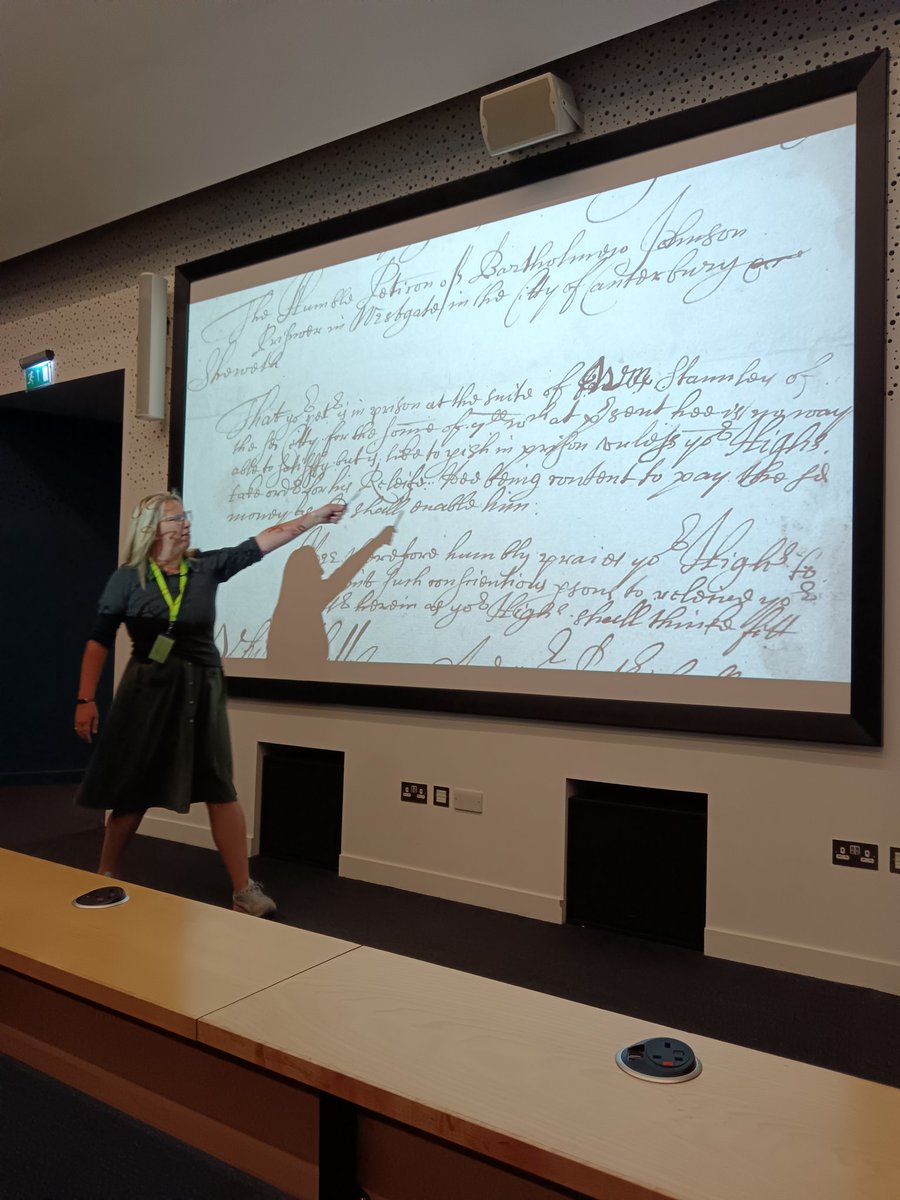 The Humble Peticon of Bartholmew Johnson
Prisoner in Westgate in the Citty of Canterbury
Sheweth
That yor petr is in prison at the suite of Stannley of
the sd Citty for the some of wch at psent hee is no way
able to satisfy but is like to pish in prison vnless yor Highs
take order for his Releife. Hee being content to pay the sd
money shall enable him.
humbly praies yor Highs to
such conscientious psons to releive yor
herein as yor Highs shall thinke fitt